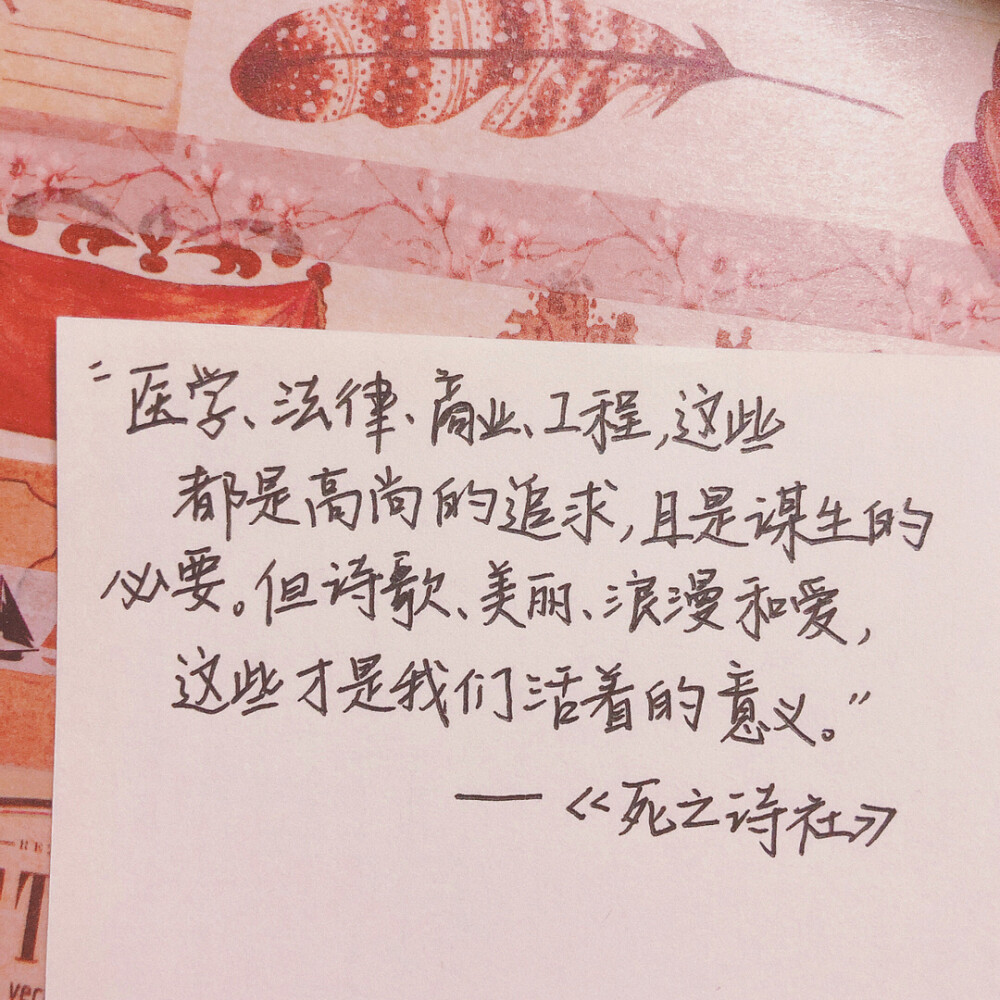 “医学、法律、商业、工程,这些
都是高尚的追求,且是谋生的
必要。但诗歌、美丽、浪漫和爱,
这些才是我们活着的意义。”
——《死之诗社》
RE
T
ver